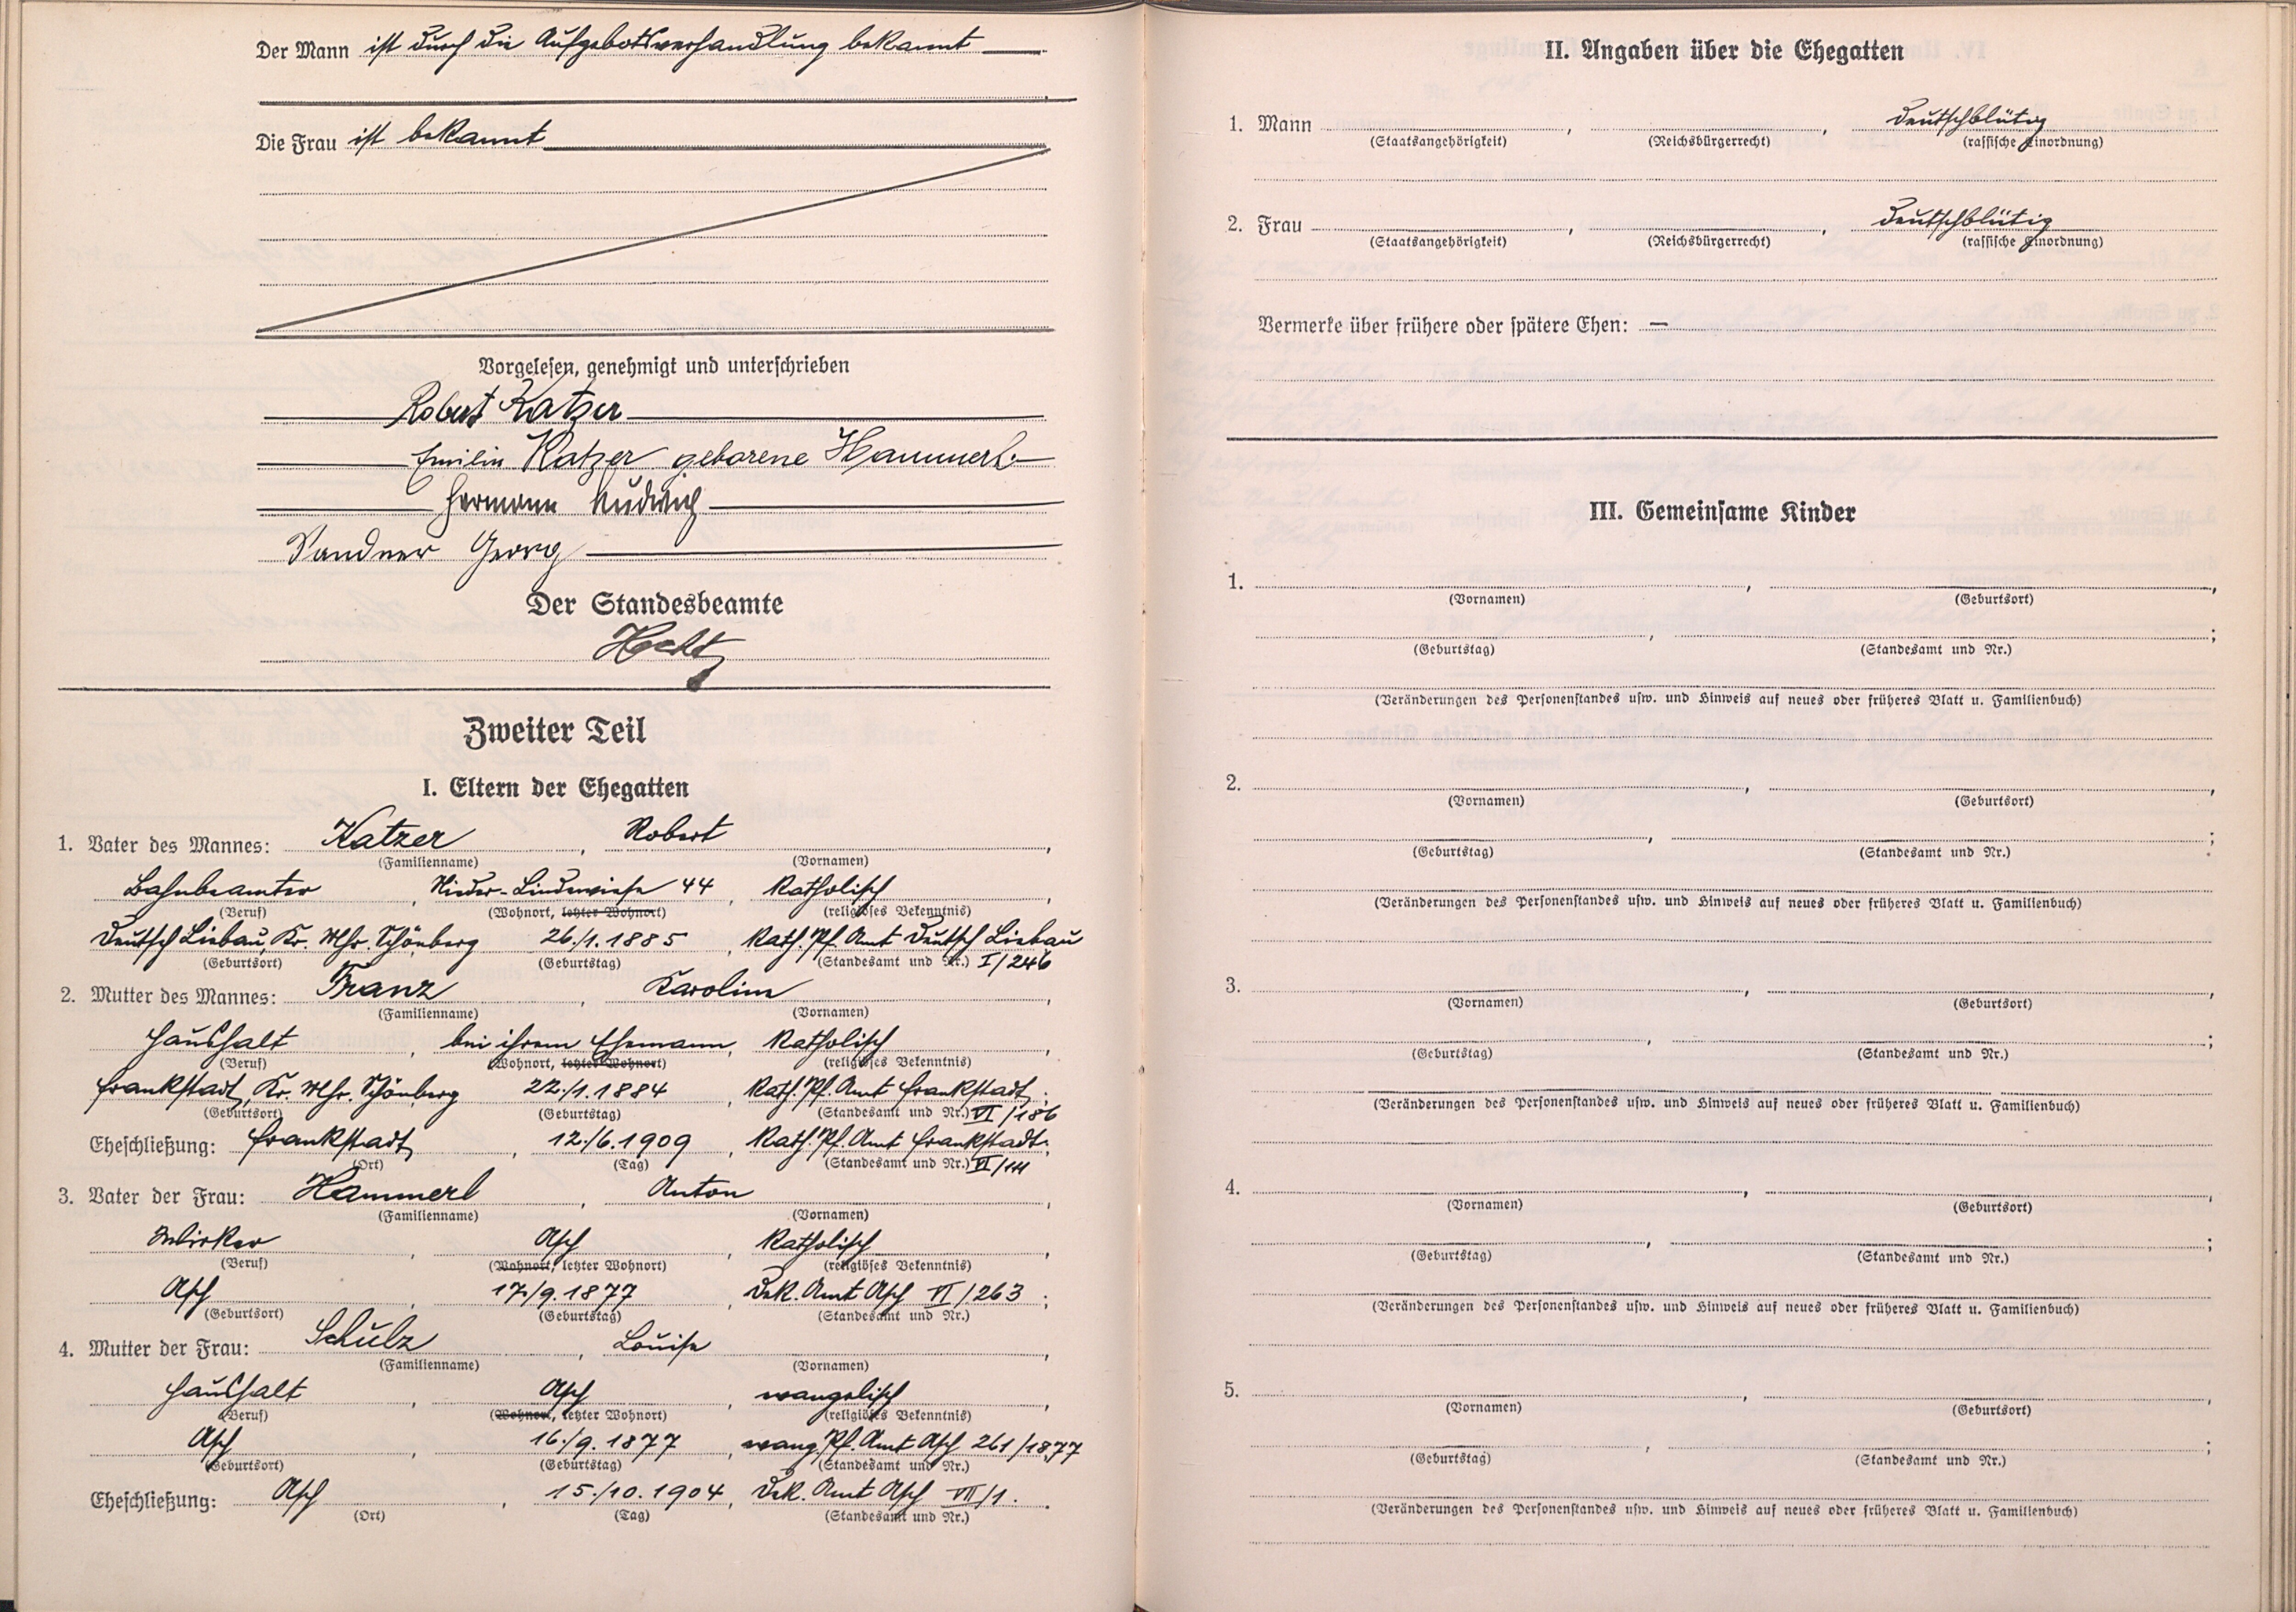 Der Mann ist durch die Aufgebotsverhandlung bekannt
Die Frau ist bekannt
Vorgelesen, genehmigt und unterschrieben
Robert Katzer
Emilie Katzer geborene Hammerl.
Hermann Ludwig
Sandner Georg
Der Standesbeamte
Zweiter Teil
I. Eltern der Ehegatten
1. Vater des Mannes: Katzer, Robert,
(Familienname) (Vornamen)
Bahnbeamter, Nieder-Lindewiese 44, Katholisch,
(Beruf) (Wohnort, letzter Wohnort) (religiöses Bekenntnis)
Deutsch Liebau, Kr. Mhr. Schönberg 26./1.1885 Kath. Pf. Amt Deutsch Liebau
(Geburtsort) (Geburtstag) (Standesamt und Nr.) I/246
2. Mutter des Mannes: Franz, Karoline,
(Familienname) (Vornamen)
Haushalt, bei ihrem Ehemann, Katholisch,
(Beruf) (Wohnort, letzter Wohnort) (religiöses Bekenntnis)
Frankstadt, Kr. Mhr. Schönberg 22./1.1884 Kath. Pf. Amt Frankstadt;
(Geburtsort) (Geburtstag) (Standesamt und Nr.) VI/186
Eheschließung: Frankstadt, 12./6.1909, Kath. Pf. Amt Frankstadt.
(Ort) (Tag) (Standesamt und Nr.) VI/111
3. Vater der Frau: Hammerl, Anton,
(Familienname) (Vornamen)
Wirker, Asch, Katholisch,
(Beruf) (Wohnort, letzter Wohnort) (religiöses Bekenntnis)
Asch, 17./9.1877, Dek. Amt Asch VI/263;
(Geburtsort) (Geburtstag) (Standesamt und Nr.)
4. Mutter der Frau: Schulz, Louise,
(Familienname) (Vornamen)
Haushalt, Asch, evangelisch,
(Beruf) (Wohnort, letzter Wohnort) (religiöses Bekenntnis)
Asch, 16./9.1877, evang. Pf. Amt Asch 261/1877
(Geburtsort) (Geburtstag) (Standesamt und Nr.)
Eheschließung: Asch, 15./10.1904, Dek. Amt Asch VII/1.
(Ort) (Tag) (Standesamt und Nr.)
II. Angaben über die Ehegatten
1. Mann , , deutschblütig
(Staatsangehörigkeit) (Reichsbürgerrecht) (rassische Einordnung)
2. Frau , , deutschblütig
(Staatsangehörigkeit) (Reichsbürgerrecht) (rassische Einordnung)
Vermerke über frühere oder spätere Ehen: —
III. Gemeinsame Kinder
1. , ,
(Vornamen) (Geburtsort)
, ;
(Geburtstag) (Standesamt und Nr.)
(Veränderungen des Personenstandes usw. und Hinweis auf neues oder früheres Blatt u. Familienbuch)
2. , ,
(Vornamen) (Geburtsort)
, ;
(Geburtstag) (Standesamt und Nr.)
(Veränderungen des Personenstandes usw. und Hinweis auf neues oder früheres Blatt u. Familienbuch)
3. , ,
(Vornamen) (Geburtsort)
, ;
(Geburtstag) (Standesamt und Nr.)
(Veränderungen des Personenstandes usw. und Hinweis auf neues oder früheres Blatt u. Familienbuch)
4. , ,
(Vornamen) (Geburtsort)
, ;
(Geburtstag) (Standesamt und Nr.)
(Veränderungen des Personenstandes usw. und Hinweis auf neues oder früheres Blatt u. Familienbuch)
5. , ,
(Vornamen) (Geburtsort)
, ;
(Geburtstag) (Standesamt und Nr.)
(Veränderungen des Personenstandes usw. und Hinweis auf neues oder früheres Blatt u. Familienbuch)